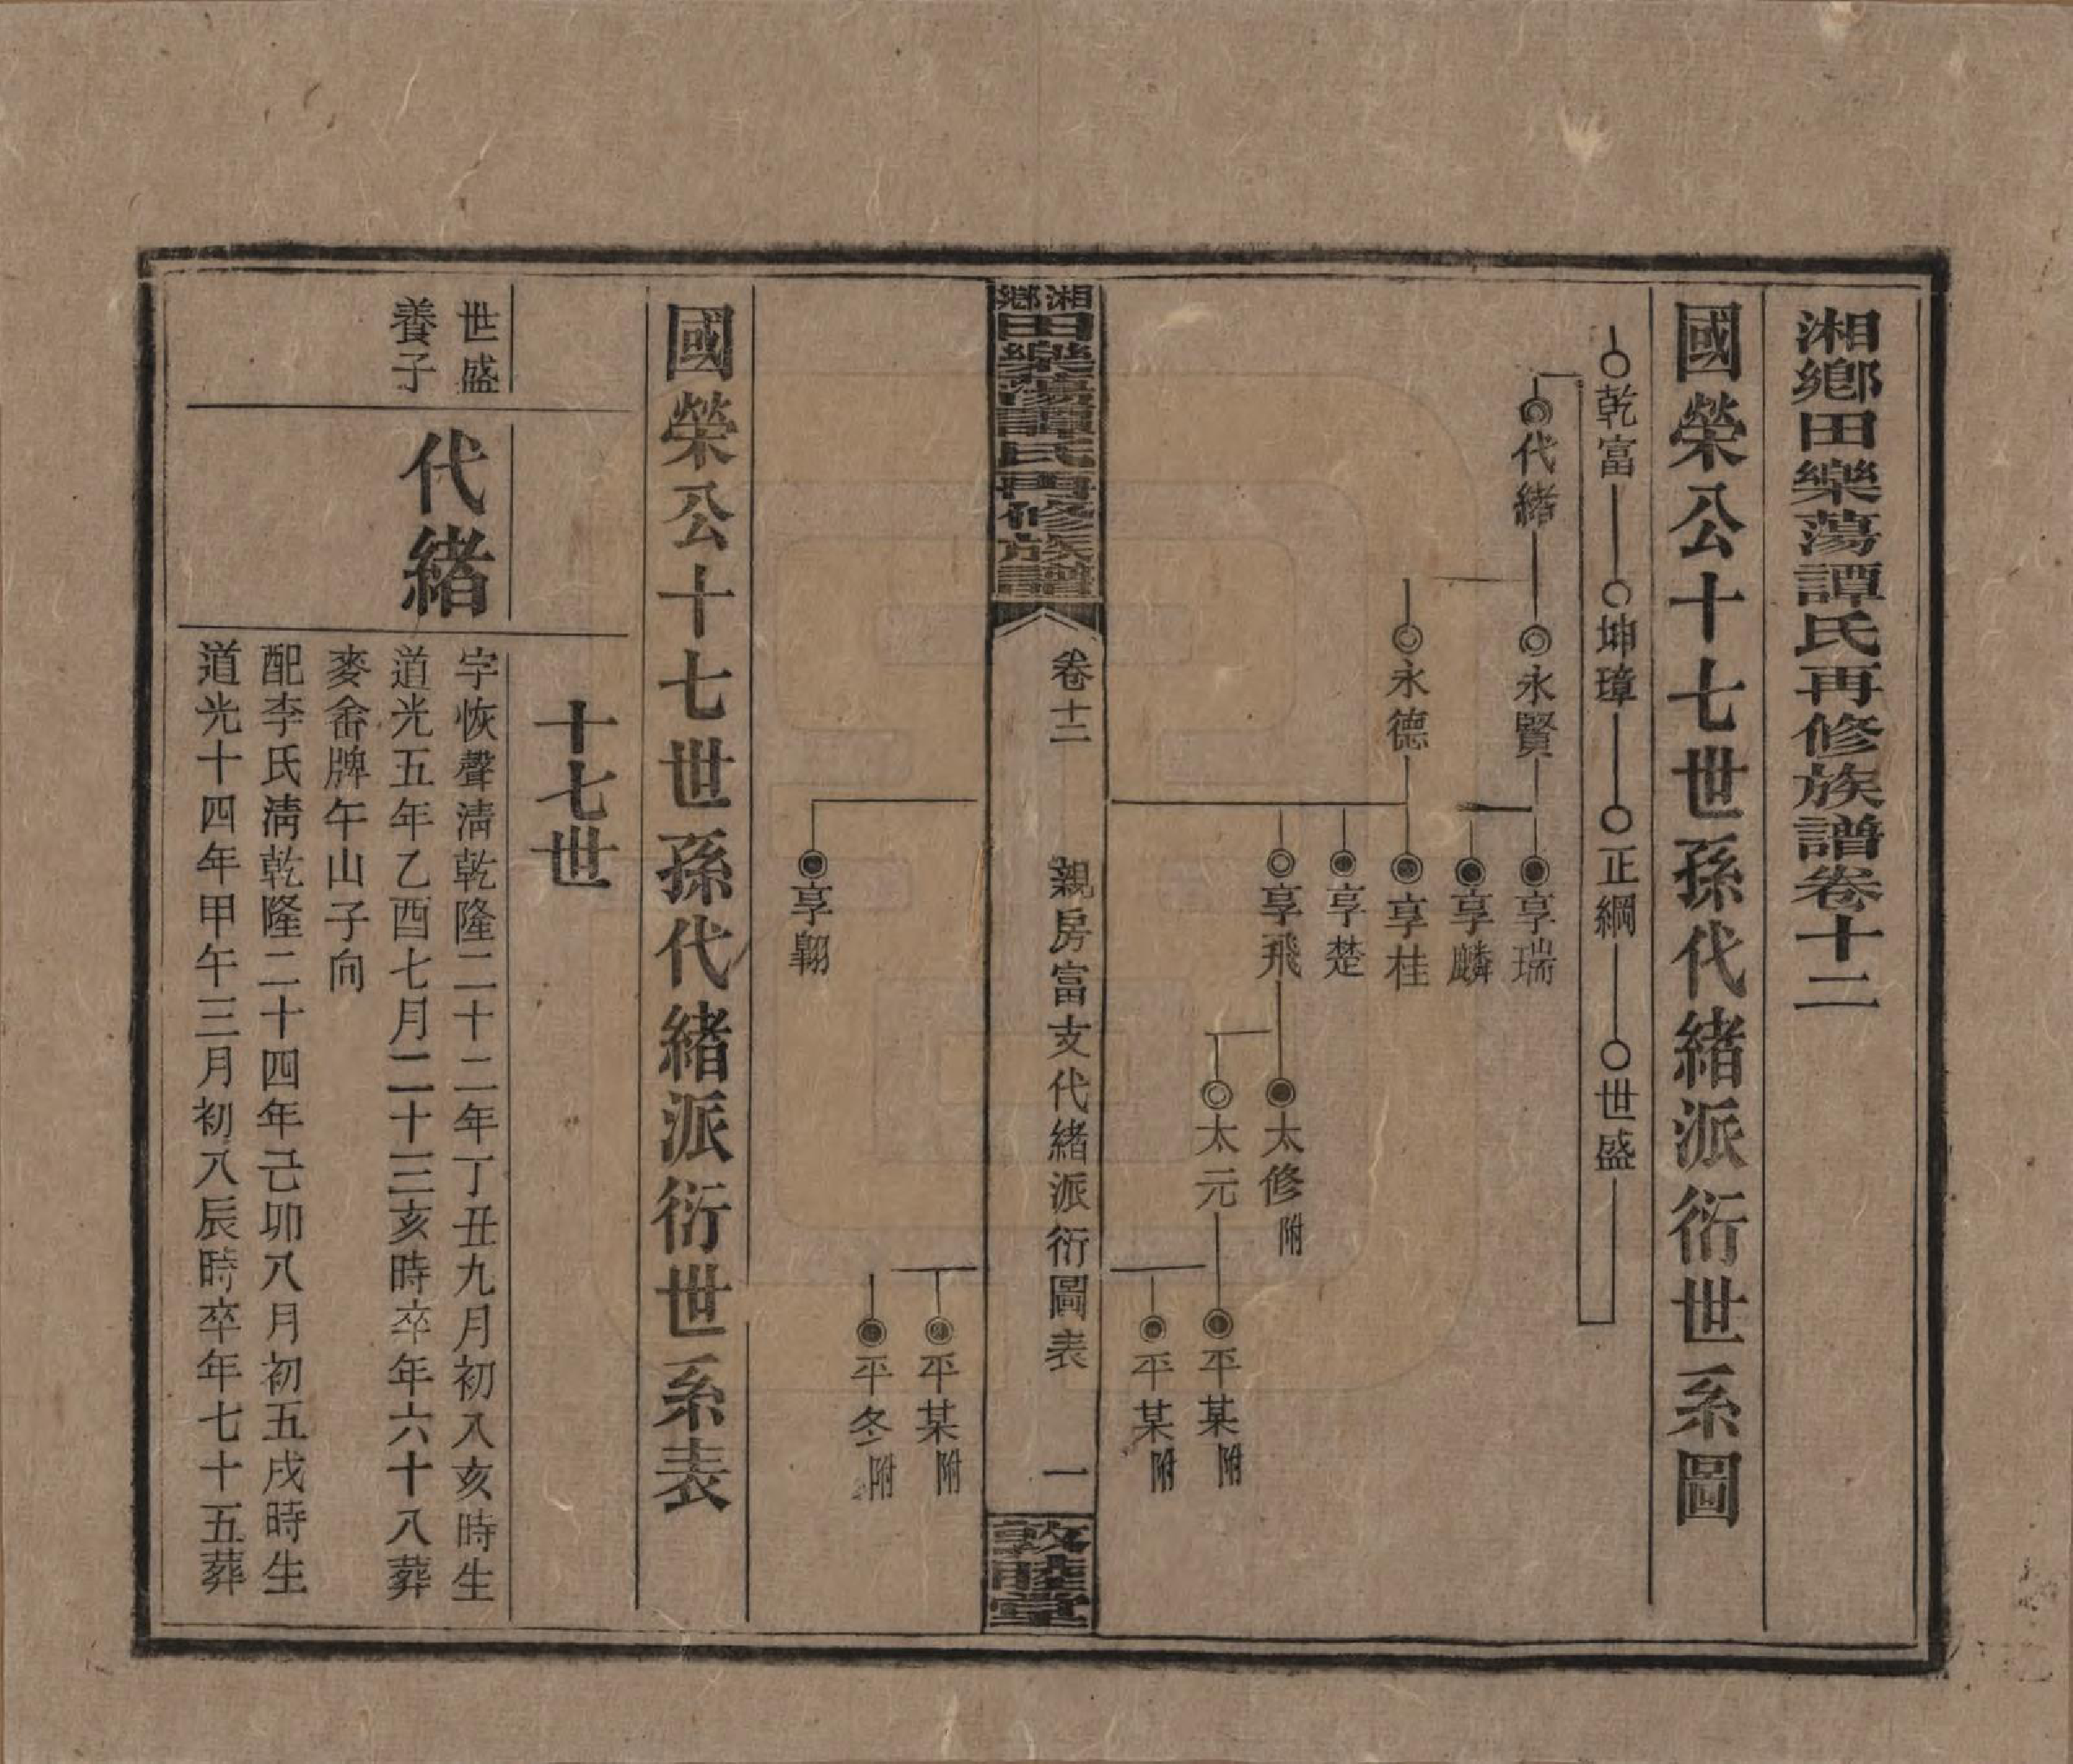 湘鄉田樂蕩譚氏再修族譜卷十二
國榮公十七世孫代緒派衍世系圖
乾富
坤璋
正綱
世盛
代緒
永賢
永德
享瑞
享麟
享桂
享楚
享飛
太修附
太元
平某附
平某附
湘鄉田樂蕩譚氏再修族譜
卷十二
親房富支代緒派衍圖表
一
敦睦堂
享翺
平某附
平冬附
國榮公十七世孫代緒派衍世系表
十七世
世盛
養子
代緒
字恢聲淸乾隆二十二年丁丑九月初入亥時生
道光五年乙酉七月二十三亥時卒年六十八葬
麥畬牌午山子向
配李氏淸乾隆二十四年己卯八月初五戌時生
道光十四年甲午三月初八辰時卒年七十五葬